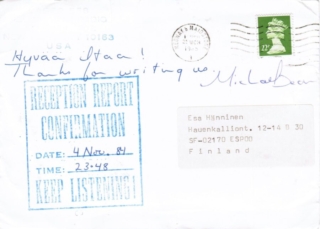 Hyvaa Iltaa!
Thanks for writing us
RECEPTION REPORT
CONFIRMATION
DATE: 4 Nov. 84
TIME: 23.48
KEEP LISTENING!
Esa Hänninen
Haukenkalliont. 12-14 B 30
SF-02170 ESPOO
Finland